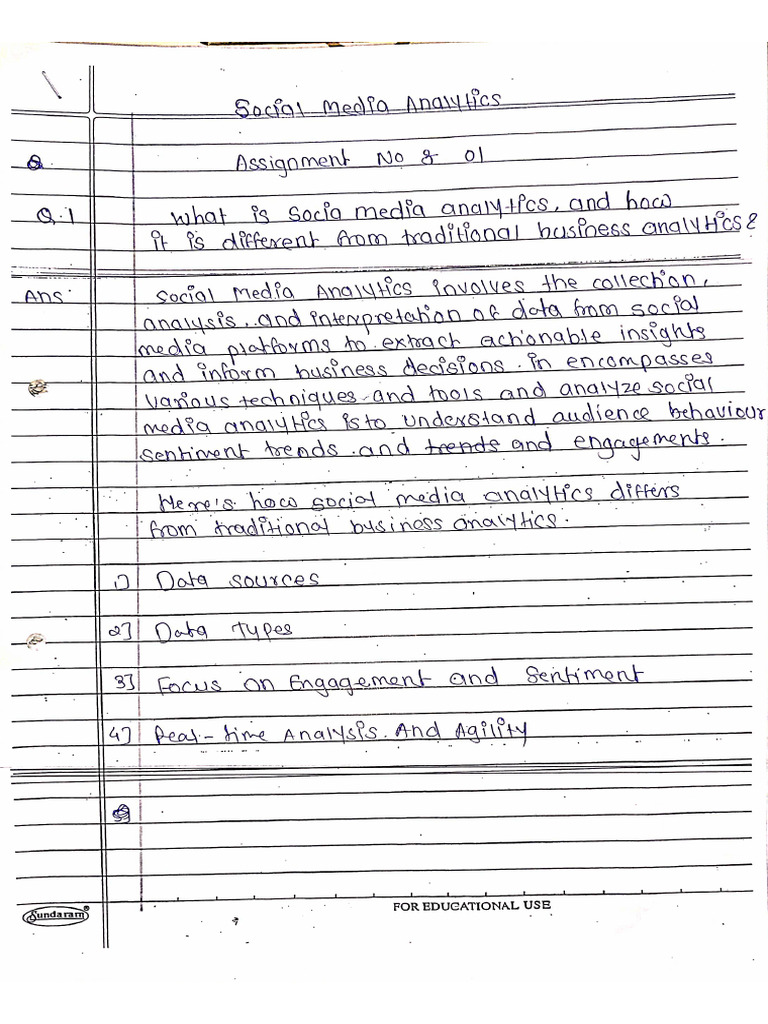 Social Media Analytics
Assignment No 8 01
Q.1 What is Socia media analytics, and how
it is different from traditional business analytics?
Ans: Social Media Analytics involves the collection,
analysis, and interpretation of data from social
media platforms to extract actionable insights
and inform business decisions. in encompasses
various techniques and tools and analyze social
media analytics is to understand audience behaviour
sentiment trends. and trends and engagements.
Here's how social media analytics differs
from traditional business analytics.
1) Data sources
2] Data Types
3] Focus on Engagement and Sentiment
4] Real-time Analysis. And Agility
Sundaram®
FOR EDUCATIONAL USE